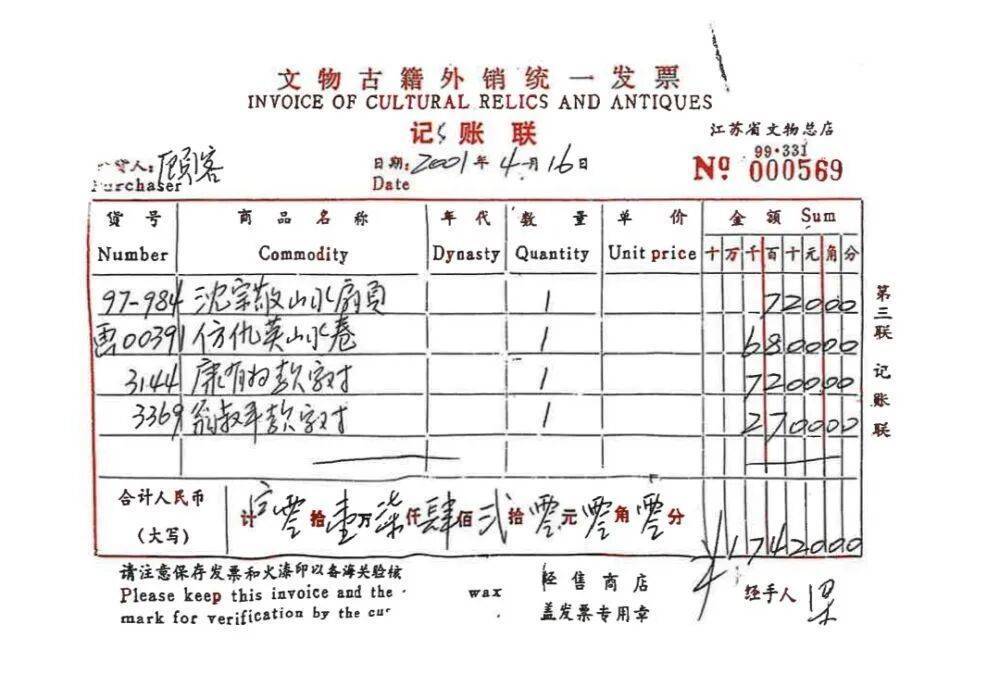 文物古籍外销统一发票
INVOICE OF CULTURAL RELICS AND ANTIQUES
记账联
江苏省文物总店
货人: 顾客
Purchaser
日期: 2001年4月16日
Date
99·331
Nº 000569
货号 商品名称 年代 数量 单价 金额 Sum
Number Commodity Dynasty Quantity Unit price 十万千百十元角分
97-984 沈宗敬山水扇页 1 72000
画00391 仿仇英山水卷 1 680000
3144 康有为款字对 1 720000
3369 翁叔平款字对 1 270000
合计人民币
(大写)
计零拾壹万柒仟肆佰贰拾零元零角零分
¥1742000
第三联 记账联
请注意保存发票和火漆印以备海关验核
Please keep this invoice and the wax
mark for verification by the cus
经售商店
盖发票专用章
经手人 梁